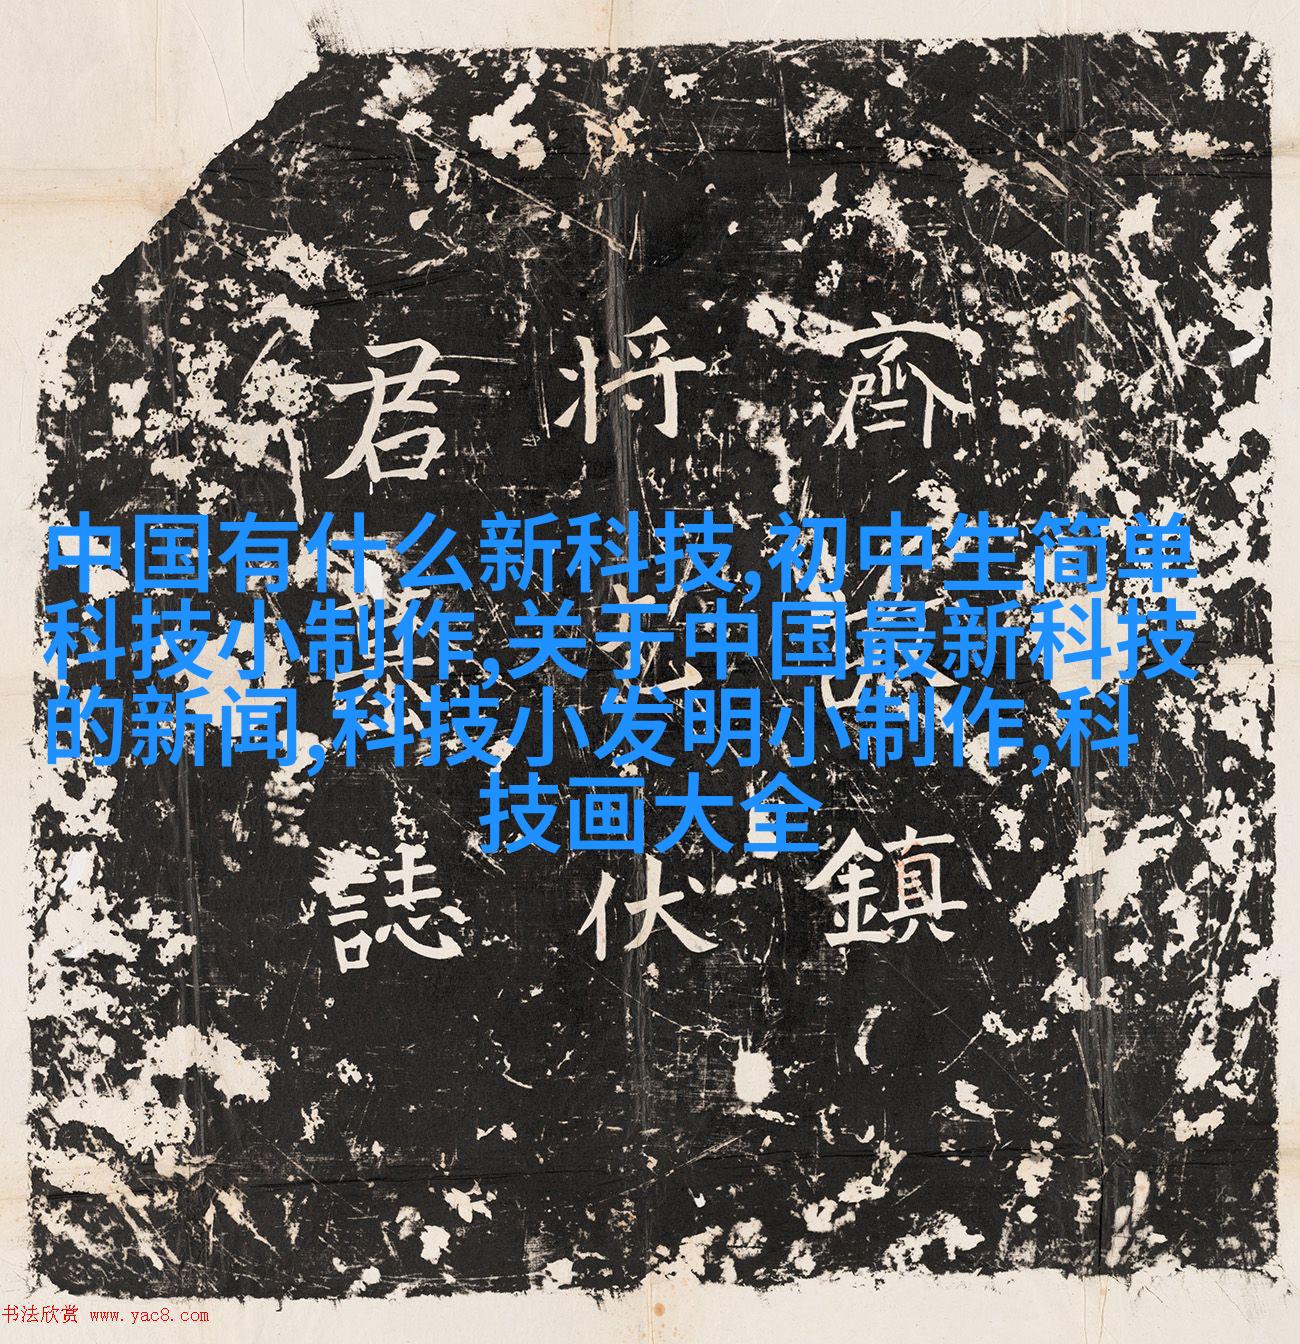 齊鎮
将伏
君誌
中国有什么新科技,初中生简单
科技小制作,关于中国最新科技
的新闻,科技小发明小制作,科
技画大全
书法欣赏 www.yac8.com